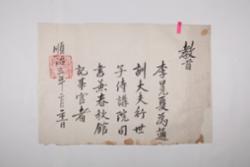 教旨
李晃夏爲通
訓大夫行世
子侍講院司
書兼春秋館
記事官者
順治三年二月二十日